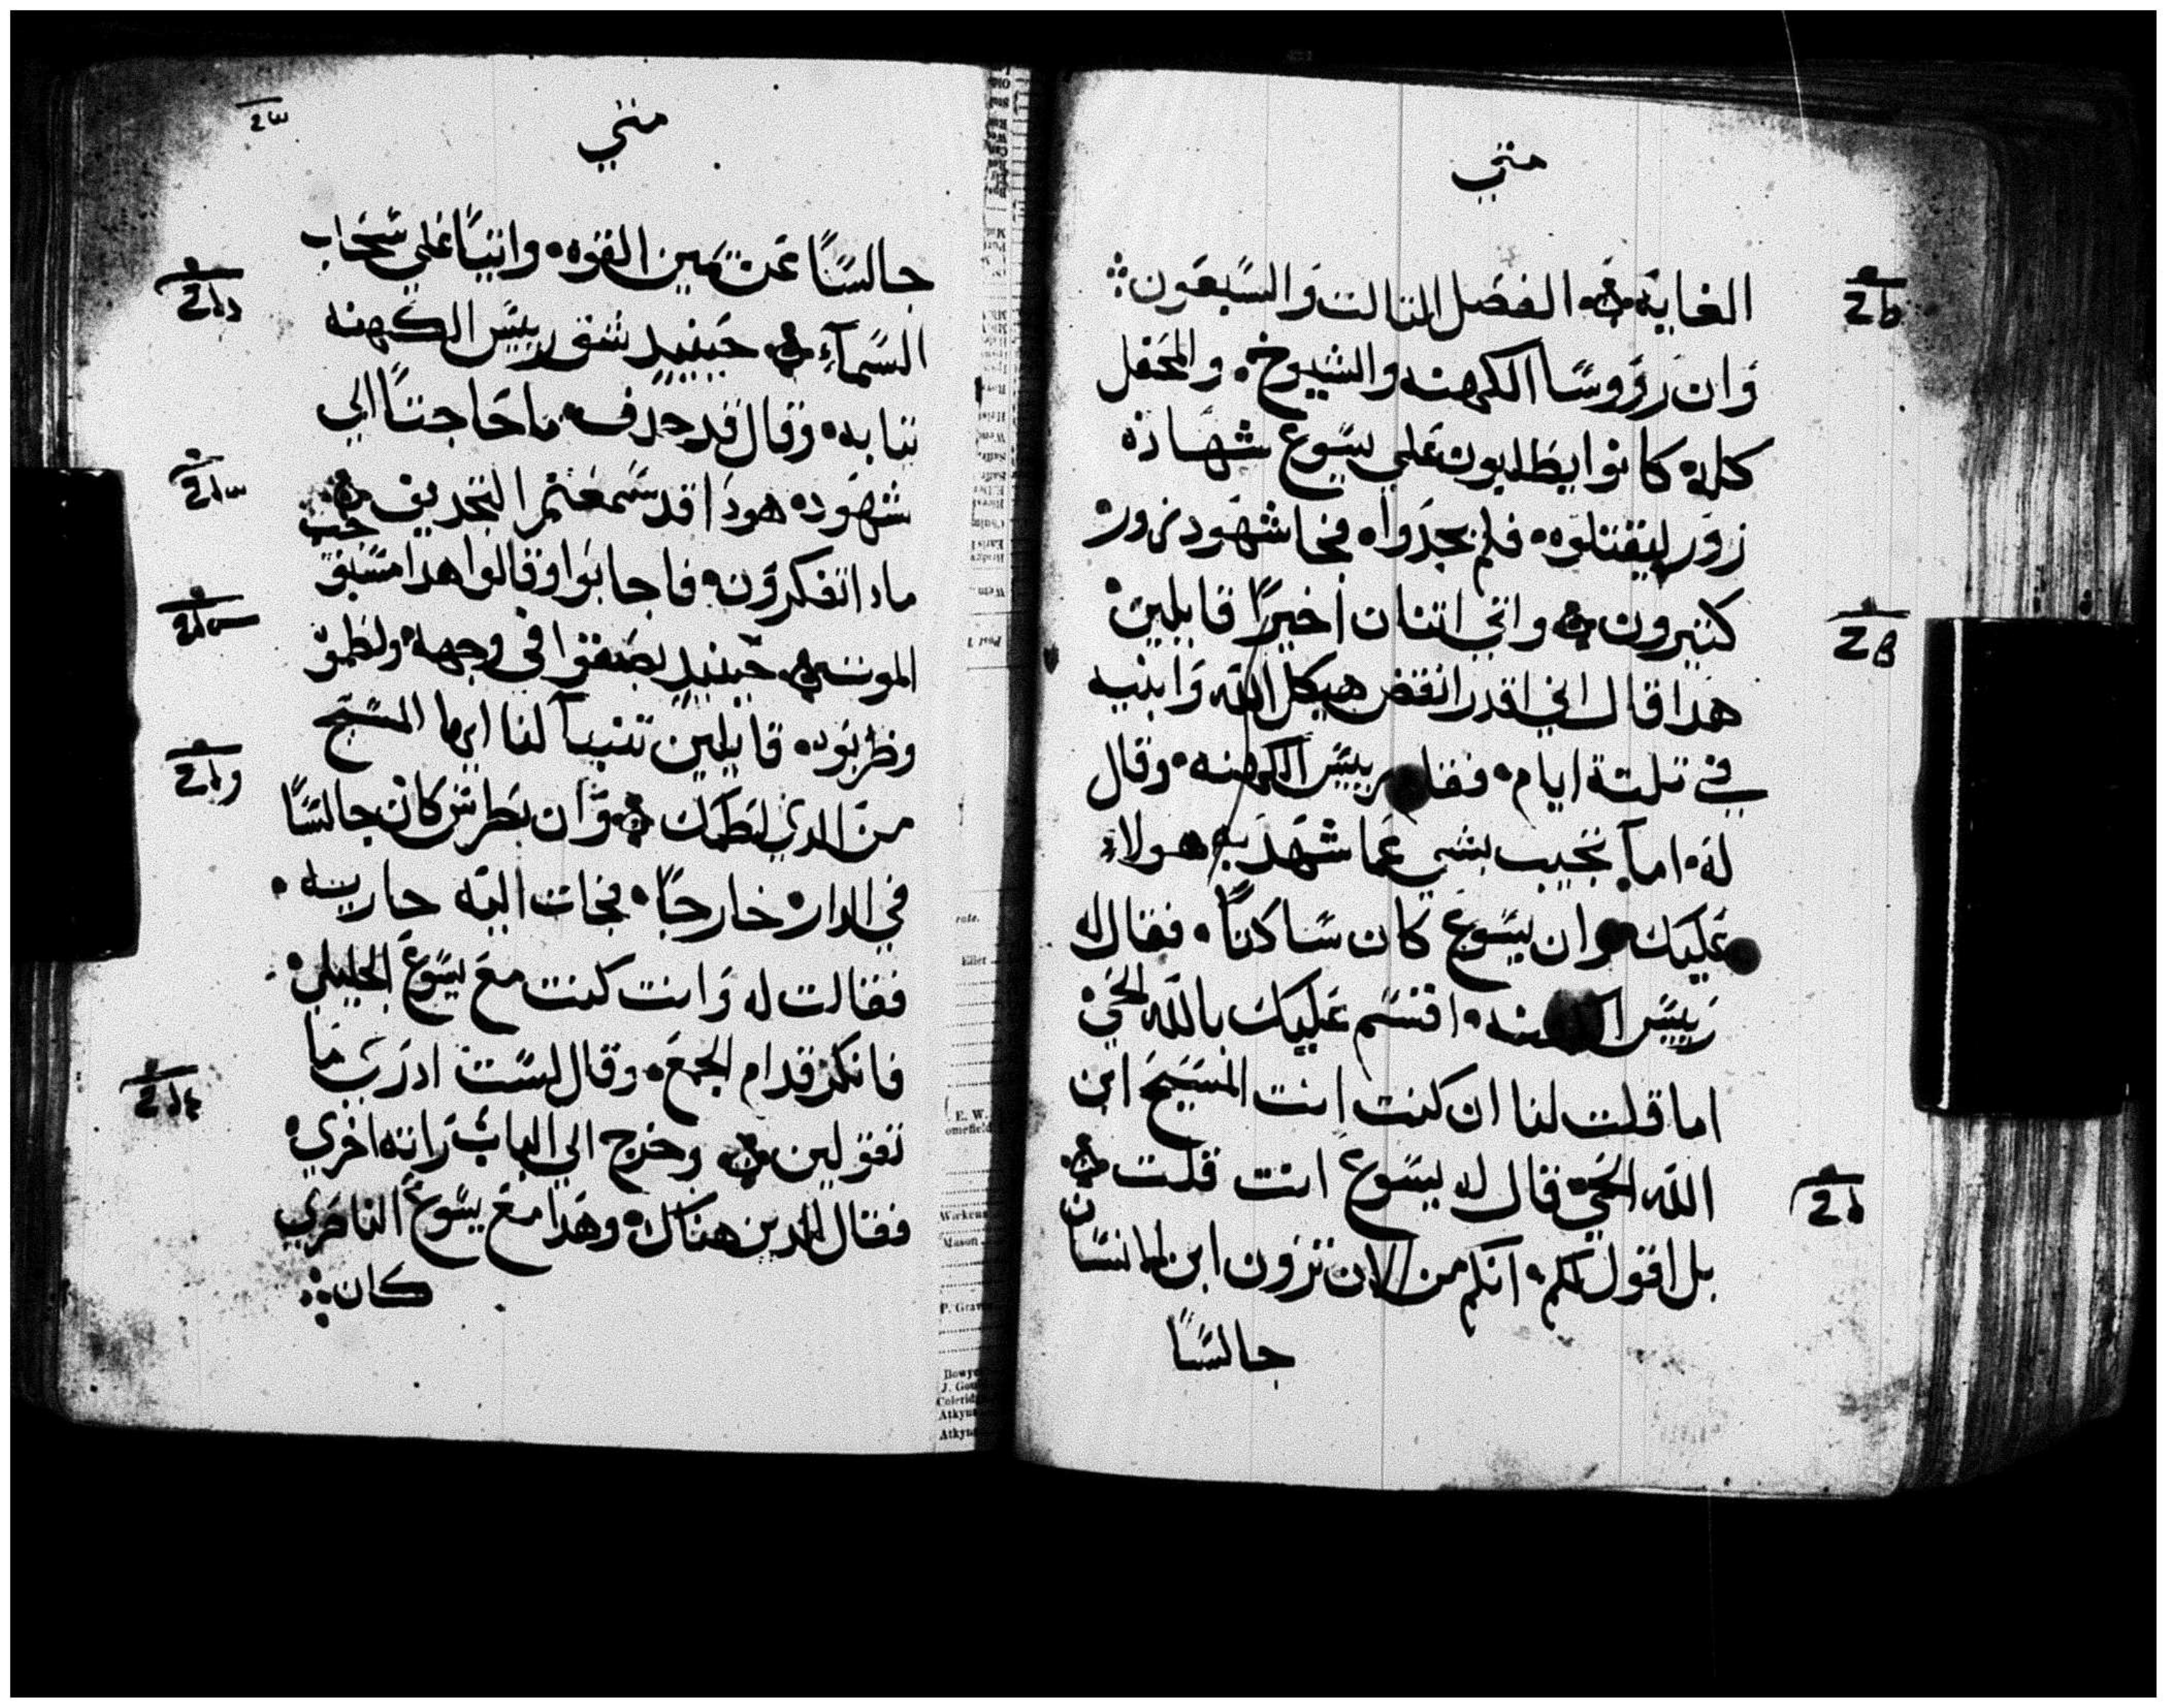 متي
الغايه ۞ الفصل التالت والسبعون
وان رووسا الكهنه والشيوخ والمحفل
كله كانوا يطلبون علي يسوع شهاده
زور ليقتلوه فلم يجدوا فجا شهود زور
كتيرون ۞ واتي اتنان اخيرًا قايلين
هدا قال اني اقدر انقض هيكل الله وابنيه
في تلتة ايام فقام رييس الكهنه وقال
له اما تجيب بشي عما شهد به هولاء
عليك وان يسوع كان ساكتًا فقال له
رييس الكهنه اقسم عليك بالله الحي
اما قلت لنا ان كنت انت المسيح ابن
الله الحي قال له يسوع انت قلت ۞
بل اقول لكم انكم من الان ترون ابن الانسان
جالسًا
متي
جالسًا عن يمين القوه واتيًا علي سحاب
السمآء ۞ حينيد شق رييس الكهنه
تيابه وقال قد جدف ما حاجتنا الي
شهود هودا قد سمعتم التجديف ۞
مادا تفكرون فاجابوا وقالوا هدا مستحق
الموت ۞ حينيد بصقوا في وجهه ولطموه
وضربوه قايلين تنبا لنا ايها المسيح
من الدي لطمك ۞ وان بطرس كان جالسًا
في الدار خارجًا فجات اليه جاريه
فقالت له وانت كنت مع يسوع الجليلي
فانكر قدام الجمع وقال لست ادري ما
تقولين ۞ وخرج الي الباب راته اخري
فقال للدين هناك وهدا مع يسوع الناصري
كان